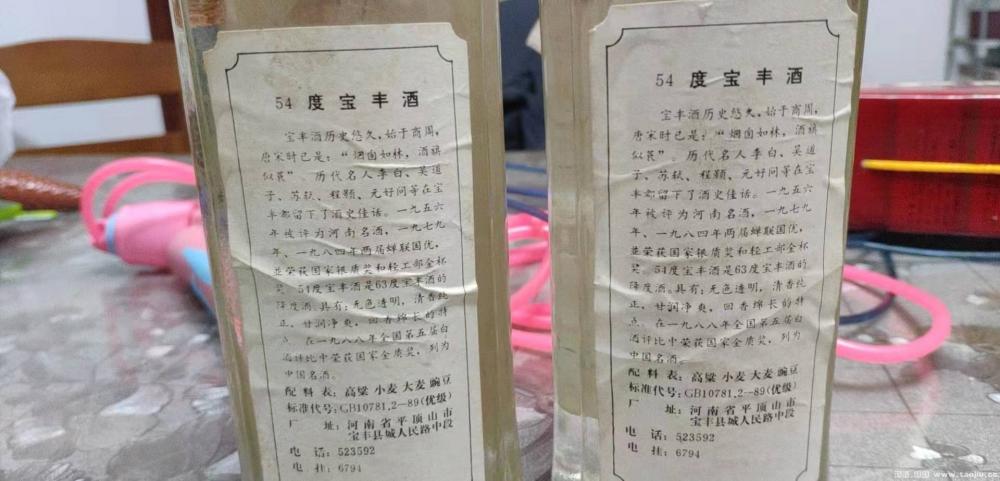 54 度宝丰酒
宝丰酒历史悠久,始于商周,
唐宋时已是:“烟囱如林,酒旗
似茛” 历代名人李白、吴道
子、苏轼、程颢、元好问等在宝
丰都留下了酒史佳话。一九五六
年被评为河南名酒,一九七九
年、一九八四年两届蝉联国优,
並荣获国家银质奖和轻工部金杯
奖。54度宝丰酒是63度宝丰酒的
降度酒。具有:无色透明,清香纯
正,甘润净爽,回香绵长的特
点。在一九八八年全国第五届白
酒评比中荣获国家金质奖,列为
中国名酒。
配料表:高粱 小麦 大麦 豌豆
标准代号:GB10781.2—89(优级)
厂 址:河南省平顶山市
宝丰县城人民路中段
电 话:523592
电 挂:6794
54 度宝丰酒
宝丰酒历史悠久,始于商周,
唐宋时已是:“烟囱如林,酒旗
似茛”。历代名人李白、吴道
子、苏轼、程颢、元好问等在宝
丰都留下了酒史佳话。一九五六
年被评为河南名酒,一九七九
年、一九八四年两届蝉联国优,
並荣获国家银质奖和轻工部金杯
奖。54度宝丰酒是63度宝丰酒的
降度酒。具有:无色透明,清香纯
正,甘润净爽,回香绵长的特
点。在一九八八年全国第五届白
酒评比中荣获国家金质奖,列为
中国名酒。
配料表:高粱 小麦 大麦 豌豆
标准代号:GB10781.2—89(优级)
厂 址:河南省平顶山市
宝丰县城人民路中段
电 话:523592
电 挂:6794
www.taojiu.cc